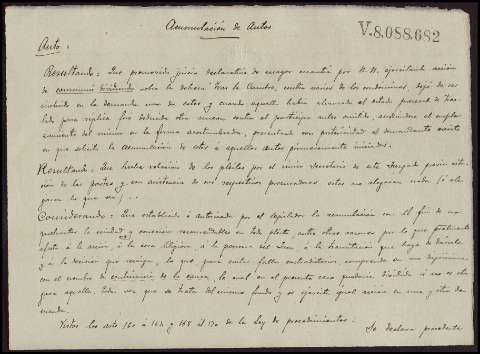 Acumulación de Autos
V.8.088.682
Auto:
Resultando: Que promovido juicio declarativo de mayor cuantía por N.N. ejercitando acción
de communi dividundo sobre la dehesa tras la Cumbre, contra varios de los condóminos, dejó de ser
incluido en la demanda uno de estos y cuando aquella había alcanzado el estado procesal de tras-
lado para réplica fué deducida otra nueva contra el partícipe antes omitido, haciéndose el empla-
zamiento del mismo en la forma acostumbrada, presentando con posterioridad el demandante escrito
en que solicita la acumulación de estos á aquellos autos primeramente iniciados.
Resultando: Que hecha relación de los pleitos por el único Secretario de este Juzgado previa cita-
ción de las partes y con asistencia de sus respectivos procuradores estos no alegaron nada (ó ale-
garon lo que sea)...
Considerando: Que establecida ó autorizada por el legislador la acumulación con el fin de
la unidad y conexión recomendables en todo pleito, entre otras razones por lo que
afecta á la acción, á la cosa litigiosa, á la persona del Juez, á la tramitación que haya de dársele
y á la decisión que recaiga, la que para evitar fallos contradictorios, comprende en una
con el nombre de continencia de la causa, la cual en el presente caso pudiera dividirse á no
para aquella, toda vez que se trata del mismo fundo y se ejercita igual acción en una y otra de-
manda.
Vistos los arts 160 á 164 y 168 al 170 de la Ley de procedimientos:
Se declara procedente